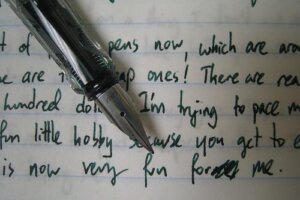 t of pens now, which are
e are cheap ones! There are
hundred I'm trying to pace m
fun little hobby because you get to e
is now very fun for me.